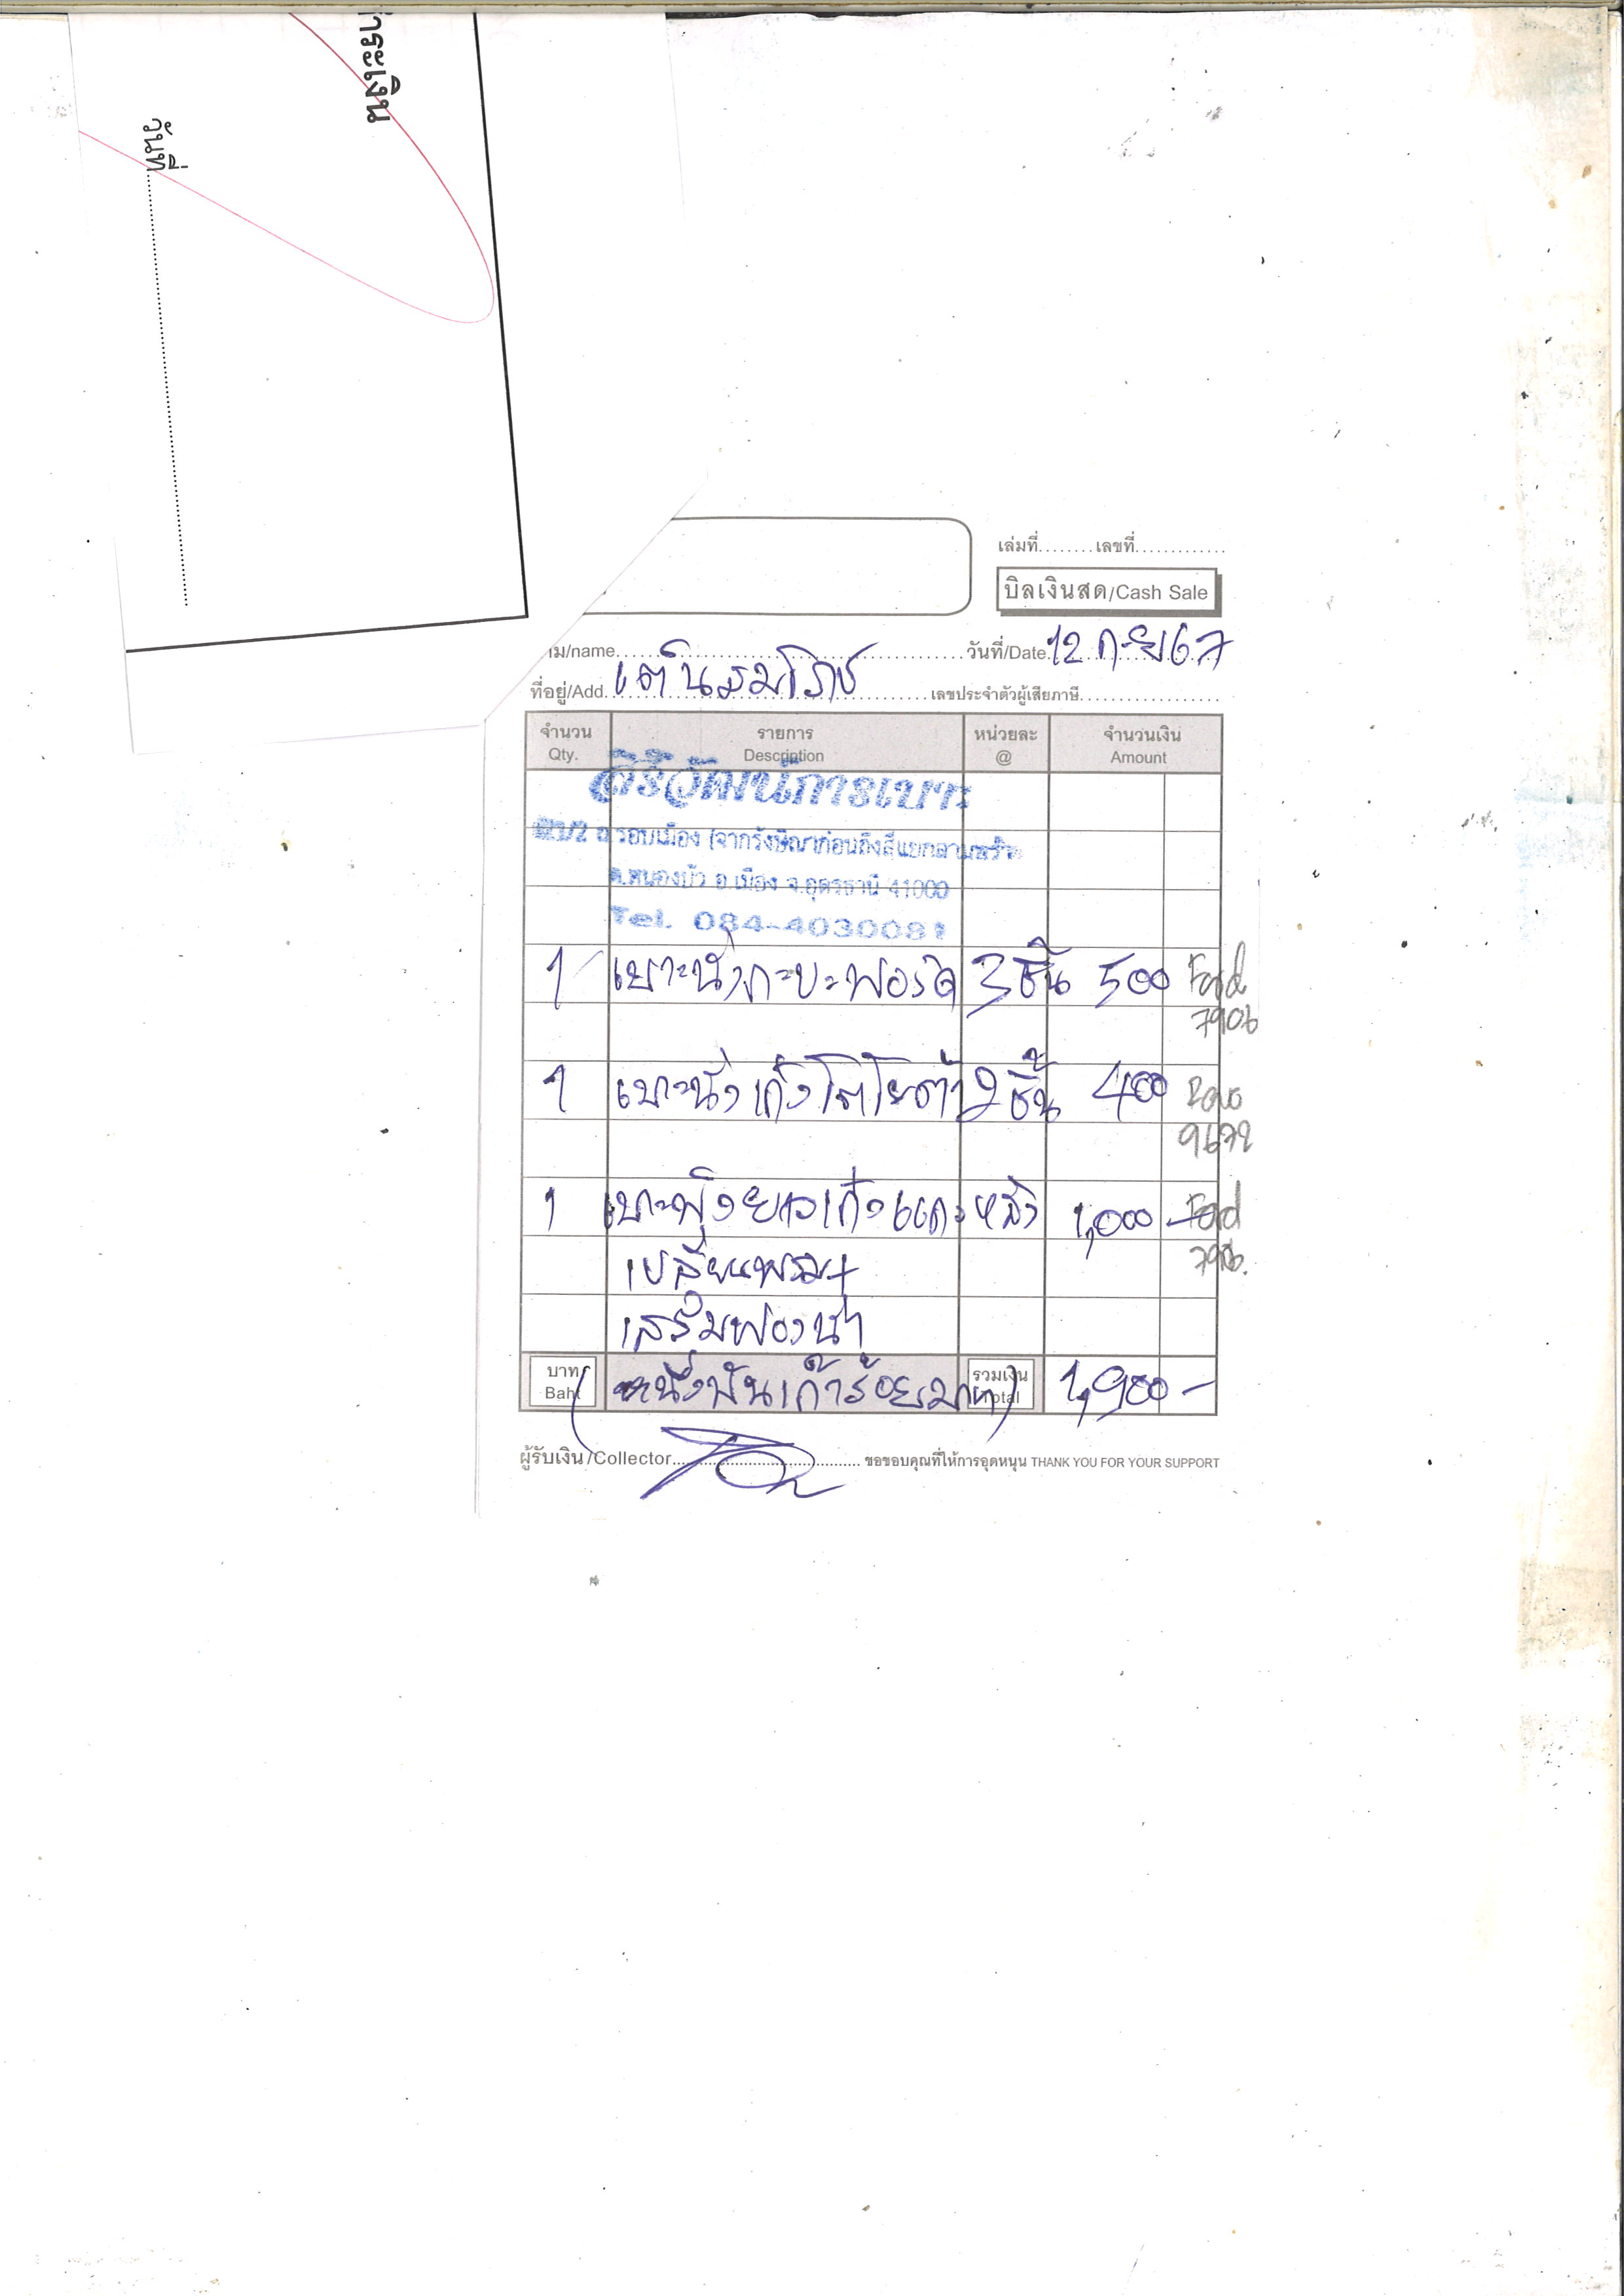 าระเงิน
วันที่
เล่มที่........เลขที่.............
บิลเงินสด/Cash Sale
าม/name
วันที่/Date 12 ก.ย 67
ที่อยู่/Add. เต๊นสมโภช
เลขประจำตัวผู้เสียภาษี
จำนวน รายการ หน่วยละ จำนวนเงิน
Qty. Description @ Amount
สิริวัฒน์การเบาะ
ถ.รอบเมือง (จากรังษิณาก่อนถึงสี่แยก
ต.หนองบัว อ.เมือง จ.อุดรธานี 41000
Tel. 084-4030081
1 เบาะนั่งกะบะฟอร์ด 3 ชิ้น 500 Ford
7906
1 เบาะนั่งเก๋งโตโยต้า 2 ชิ้น 400 Revo
9672
1 เบาะพิงยาวเก๋งแคปหลัง 1,000 Ford
7906.
เปลี่ยนพรม+
เสริมฟองน้ำ
บาท (หนึ่งพันเก้าร้อยบาท) รวมเงิน 1,900 -
Baht Total
ผู้รับเงิน/Collector
ขอขอบคุณที่ให้การอุดหนุน THANK YOU FOR YOUR SUPPORT